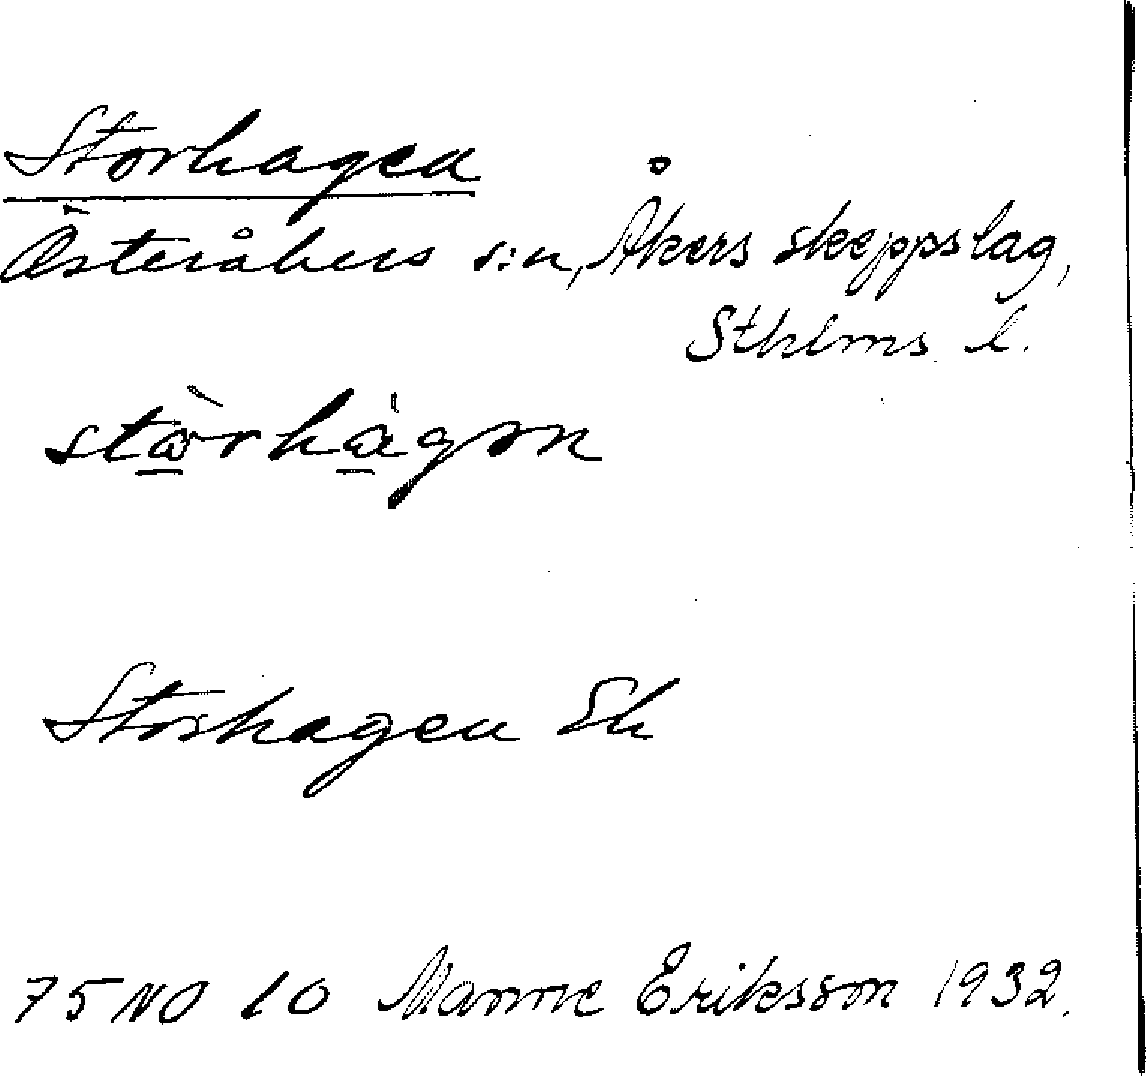 Storhagen
Österåkers s:n, Åkers skeppslag,
Sthlms l.
stòrhágən
Storhagen Ek
75 NO 10 Manne Eriksson 1932.